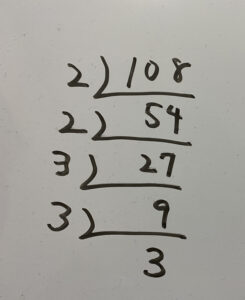 2)108
2)54
3)27
3)9
3